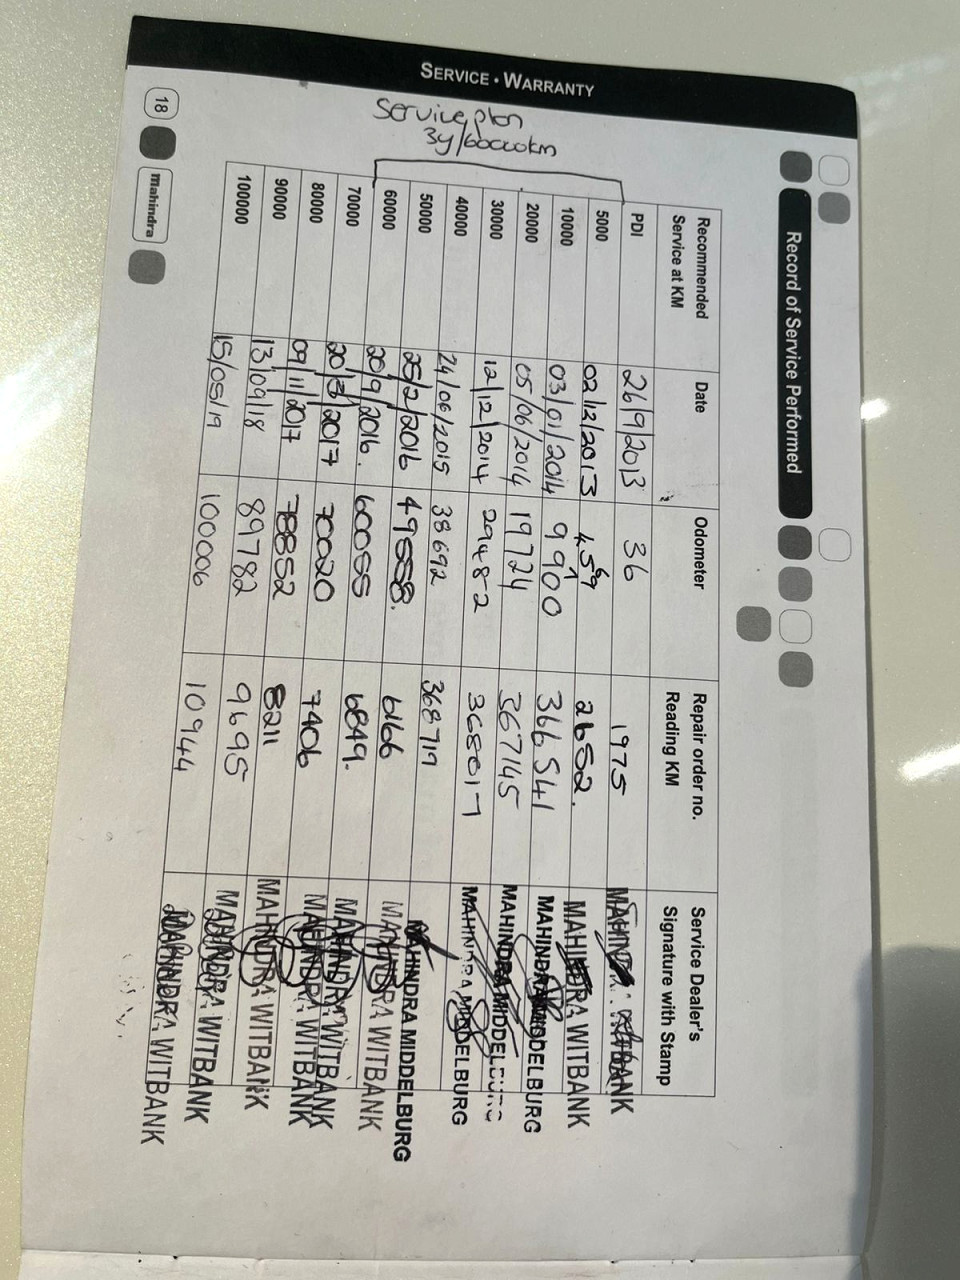 SERVICE • WARRANTY
Service plan
3y/60000km
Record of Service Performed
Recommended Service at KM Date Odometer Repair order no. Reading KM Service Dealer's Signature with Stamp
PDI 26/9/2013 36 1975 MAHINDRA WITBANK
5000 02/12/2013 2652. MAHINDRA WITBANK
10000 03/01/2014 9900 366541 MAHINDRA MIDDELBURG
20000 05/06/2014 19724 367145 MAHINDRA MIDDELBURG
30000 12/12/2014 29482 368017 MAHINDRA MIDDELBURG
40000 24/06/2015 38692 368719 MAHINDRA MIDDELBURG
50000 25/2/2016 49558. 6166 MAHINDRA WITBANK
60000 20/9/2016. 60055 6849. MAHINDRA WITBANK
70000 2017 70020 7406 MAHINDRA WITBANK
80000 09/11/2017 78852 8211 MAHINDRA WITBANK
90000 13/09/18 89782 9695 MAHINDRA WITBANK
100000 15/05/19 100006 10944 MAHINDRA WITBANK
18
Mahindra